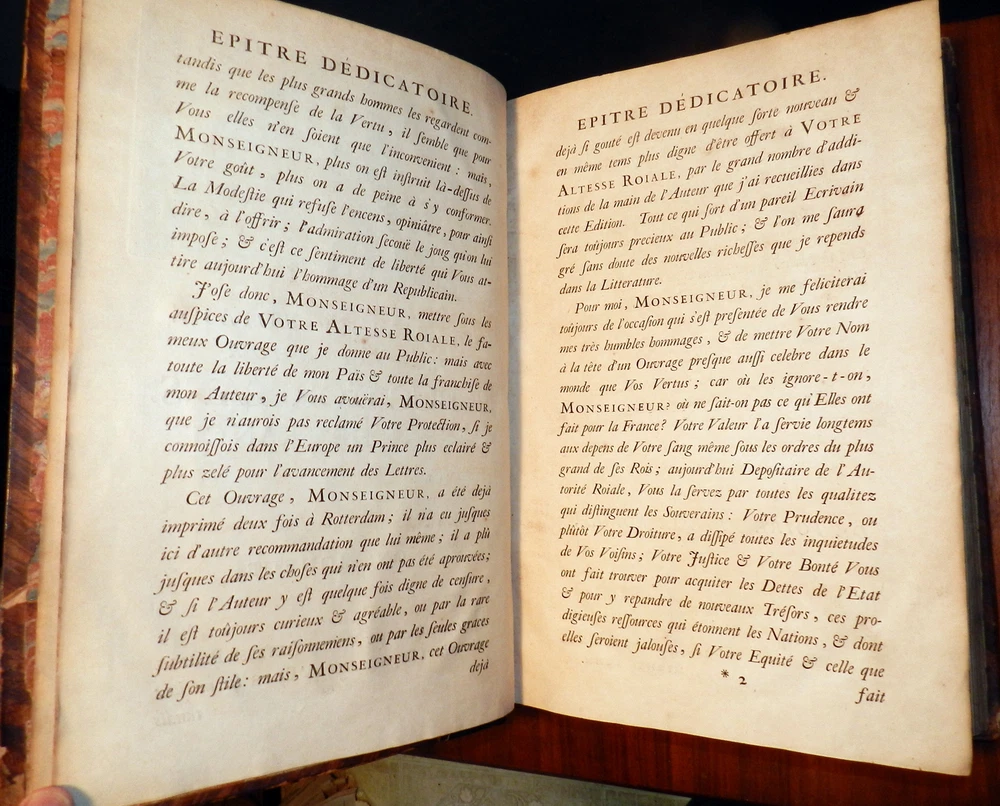 EPITRE DÉDICATOIRE.
tandis que les plus grands hommes les regardent com-
me la recompenſe de la Vertu, il ſemble que pour
Vous elles n'en ſoient que l'inconvenient : mais,
MONSEIGNEUR, plus on eſt inſtruit là-deſſus de
Votre goût, plus on a de peine à s'y conformer.
La Modeſtie qui refuſe l'encens, opiniâtre, pour ainſi
dire, à l'offrir; l'admiration ſecouë le joug qu'on lui
impoſe; & c'eſt ce ſentiment de liberté qui Vous at-
tire aujourd'hui l'hommage d'un Republicain.
J'oſe donc, MONSEIGNEUR, mettre ſous les
auſpices de VOTRE ALTESSE ROIALE, le fa-
meux Ouvrage que je donne au Public: mais avec
toute la liberté de mon Païs & toute la franchiſe de
mon Auteur, je Vous avouërai, MONSEIGNEUR,
que je n'aurois pas reclamé Votre Protection, ſi je
connoiſſois dans l'Europe un Prince plus eclairé &
plus zelé pour l'avancement des Lettres.
Cet Ouvrage, MONSEIGNEUR, a été dejà
imprimé deux fois à Rotterdam; il n'a eu juſques
ici d'autre recommandation que lui même; il a plû
juſques dans les choſes qui n'en ont pas été aprouvées;
& ſi l'Auteur y eſt quelque fois digne de cenſure,
il eſt toûjours curieux & agréable, ou par la rare
ſubtilité de ſes raiſonnemens, ou par les ſeules graces
de ſon ſtile: mais, MONSEIGNEUR, cet Ouvrage
dejà
EPITRE DÉDICATOIRE.
dejà ſi gouté eſt devenu en quelque ſorte nouveau &
en même tems plus digne d'être offert à VOTRE
ALTESSE ROIALE, par le grand nombre d'addi-
tions de la main de l'Auteur que j'ai recueillies dans
cette Edition. Tout ce qui ſort d'un pareil Ecrivain
ſera toûjours precieux au Public; & l'on me ſaura
gré ſans doute des nouvelles richeſſes que je repends
dans la Litterature.
Pour moi, MONSEIGNEUR, je me féliciterai
toûjours de l'occaſion qui s'eſt preſentée de Vous rendre
mes très humbles hommages, & de mettre Votre Nom
à la tête d'un Ouvrage preſque auſſi celebre dans le
monde que Vos Vertus; car où les ignore-t-on,
MONSEIGNEUR? où ne ſait-on pas ce qu'Elles ont
fait pour la France? Votre Valeur l'a ſervie longtems
aux depens de Votre ſang même ſous les ordres du plus
grand de ſes Rois; aujourd'hui Depoſitaire de l'Au-
torité Roiale, Vous la ſervez par toutes les qualitez
qui diſtinguent les Souverains: Votre Prudence, ou
plûtôt Votre Droiture, a diſſipé toutes les inquietudes
de Vos Voiſins; Votre Juſtice & Votre Bonté Vous
ont fait trouver pour acquiter les Dettes de l'Etat
& pour y repandre de nouveaux Tréſors, ces pro-
digieuſes reſſources qui étonnent les Nations, & dont
elles ſeroient jalouſes, ſi Votre Equité & celle que
* 2
fait